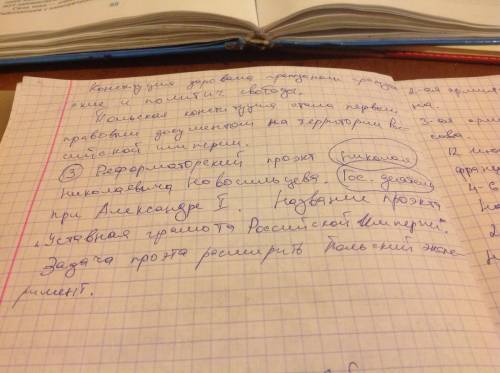 Конституция даровала гражданам граждан
ские и политич свобода.
Польская конституция стала первым
правовым документом на территории Рос
сийской империи.
③ Реформаторский проэкт Николая
Николаевича Новосильцева. Гос. деятель
при Александре I. Название проэкта
„Уставная грамота Российской Империи".
Задача проэта расширить Польский экспе
римент.
2-ая армия
3-ая армия
12
4-
2